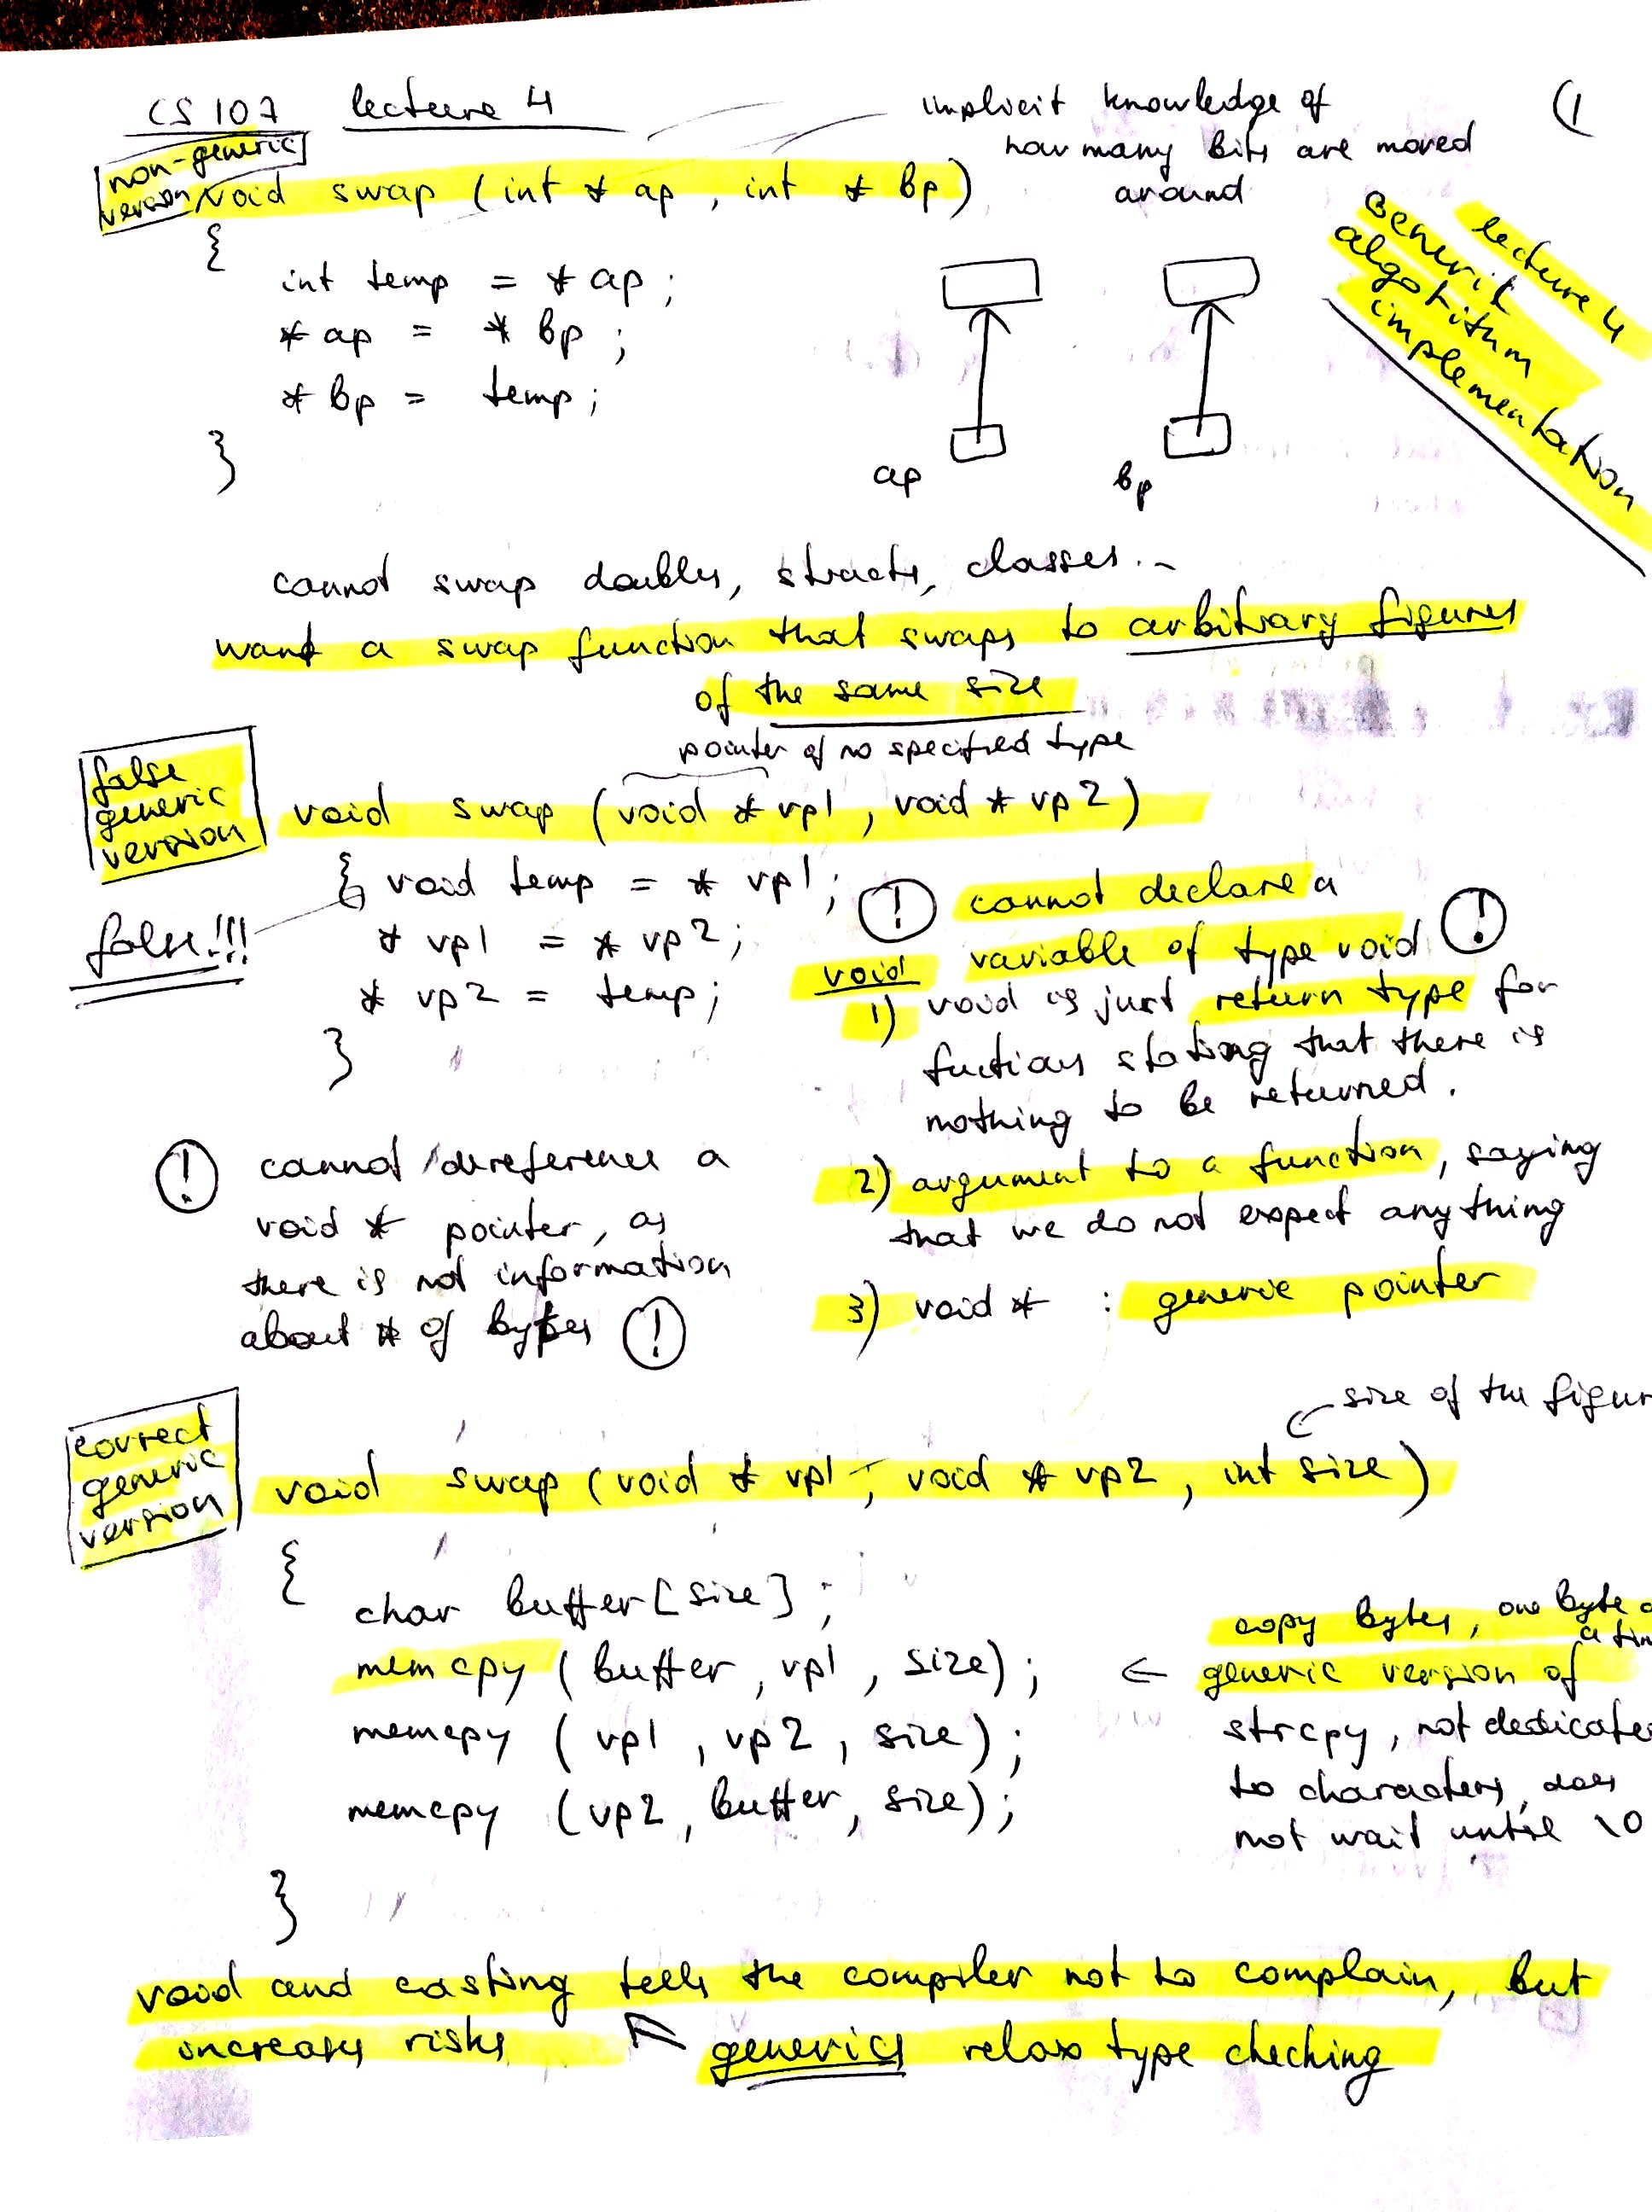 CS 107 lecture 4
(1
implicit knowledge of
how many bits are moved
around
non-generic
version
void swap (int * ap, int * bp)
{
int temp = * ap;
* ap = * bp;
* bp = temp;
}
ap
bp
lecture 4
Generik
algoritum
implementation
cannot swap doubles, structs, classes...
want a swap function that swaps to arbitrary figures
of the same size
pointer of no specified type
false
generic
version
void swap (void * vp1, void * vp2)
{ void temp = * vp1;
false!!!
* vp1 = * vp2;
* vp2 = temp;
}
! cannot declare a
variable of type void !
void
1) void is just return type for
fuctions stating that there is
nothing to be returned.
2) argument to a function, saying
that we do not expect anything
3) void * : generic pointer
! cannot dereference a
void * pointer, as
there is not information
about # of bytes !
size of the figur
correct
generic
version
void swap (void * vp1, void * vp2, int size)
{
char buffer[size];
memcpy (buffer, vp1, size);
memcpy (vp1, vp2, size);
memcpy (vp2, buffer, size);
}
← copy bytes, one byte
a tim
generic version of
strcpy, not dedicate
to characters, does
not wait until \0
void and casting tells the compiler not to complain, but
increases risks
generics relax type checking